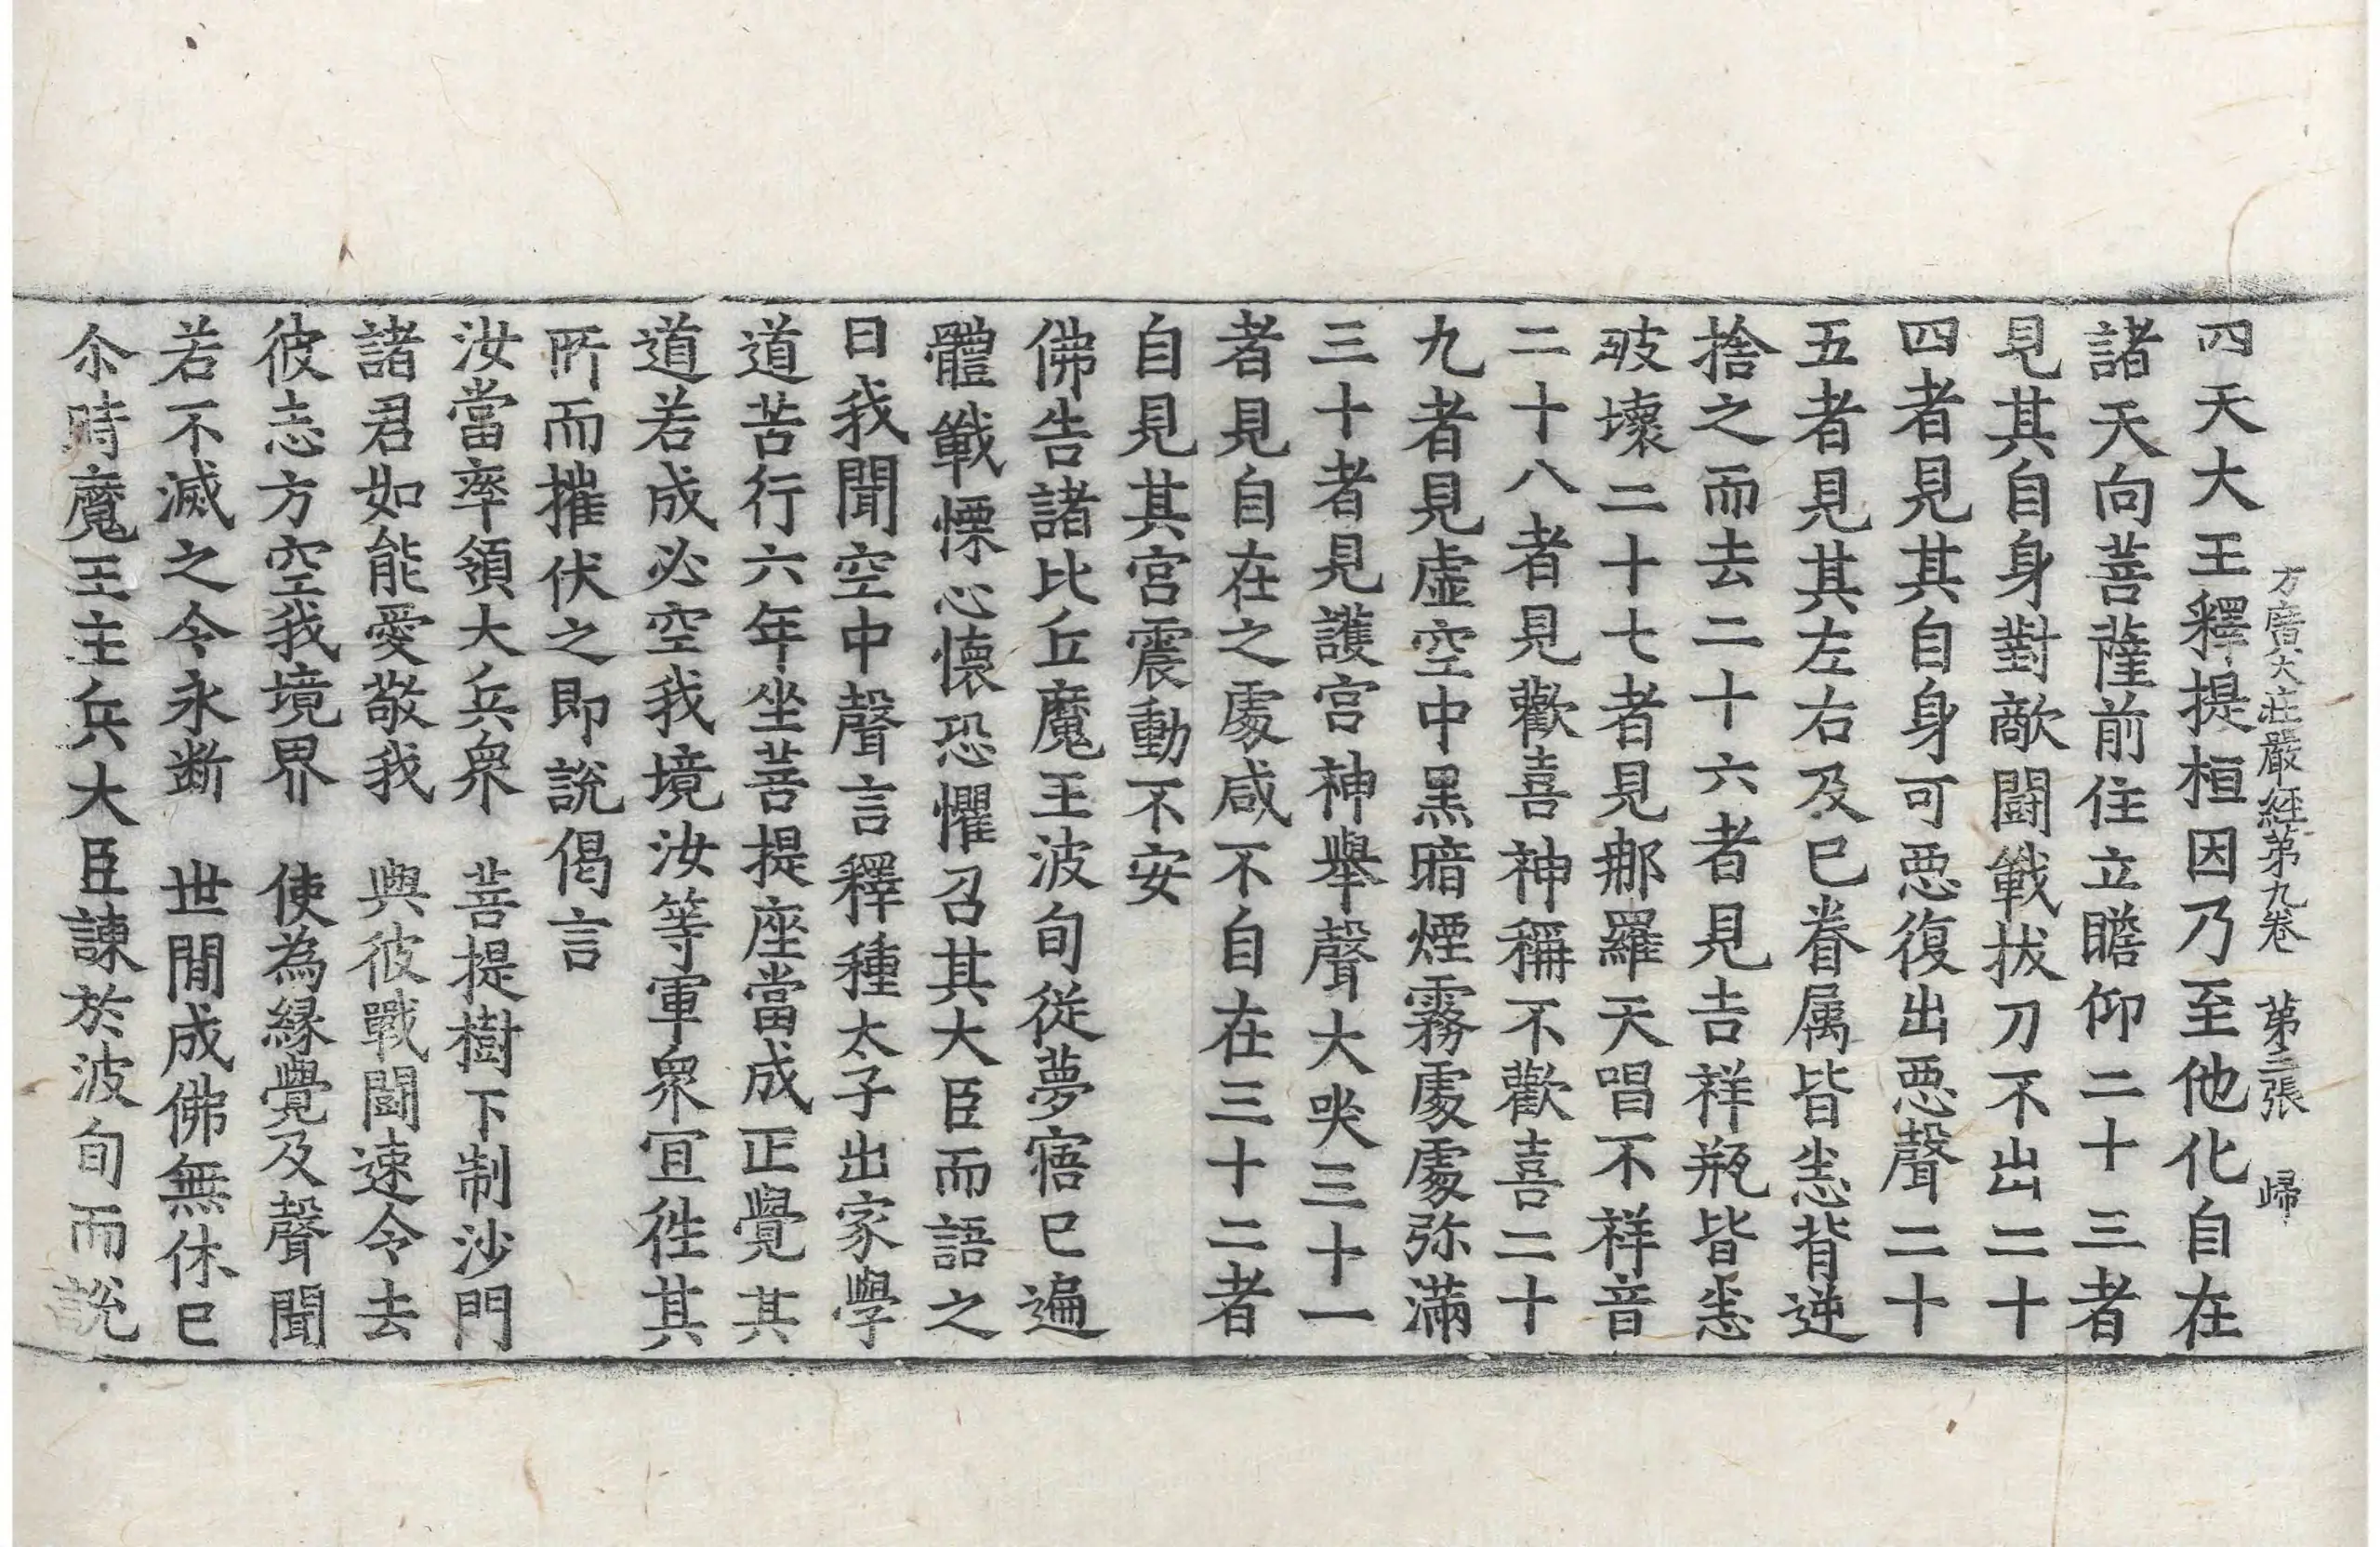 方廣大莊嚴經第九卷 第二張 歸
四天大王釋提桓因乃至他化自在
諸天向菩薩前住立瞻仰二十三者
見其自身對敵鬪戰拔刀不出二十
四者見其自身可惡復出惡聲二十
五者見其左右及已眷属皆悉背逆
捨之而去二十六者見吉祥瓶皆悉
破壞二十七者見那羅天唱不祥音
二十八者見歡喜神稱不歡喜二十
九者見虛空中黑暗煙霧處處弥滿
三十者見護宮神舉聲大哭三十一
者見自在之處咸不自在三十二者
自見其宮震動不安
佛告諸比丘魔王波旬從夢寤已遍
體戰慄心懷恐懼召其大臣而語之
曰我聞空中聲言釋種太子出家學
道苦行六年坐菩提座當成正覺其
道若成必空我境汝等軍衆宜往其
所而摧伏之即說偈言
汝當率領大兵衆 菩提樹下制沙門
諸君如能愛敬我 與彼戰鬪速令去
彼志方空我境界 使為緣覺及聲聞
若不滅之令永断 世間成佛無休已
尒時魔王主兵大臣諫於波旬而說